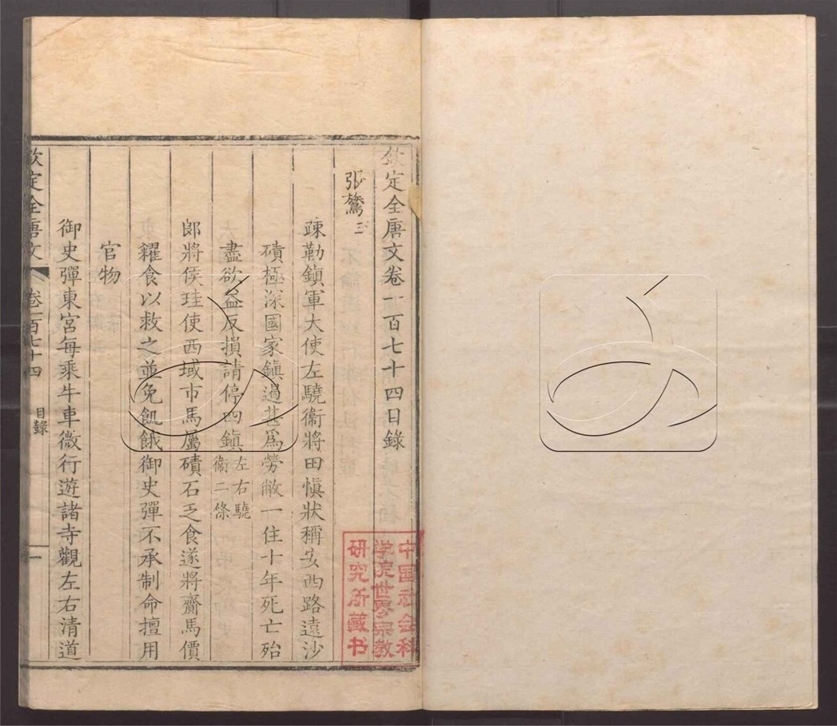 欽定全唐文卷一百七十四目錄
張鷟三
疎勒鎮軍大使左驍衞將田愼狀稱安西路遠沙
磧極深國家鎮遏甚爲勞敝一住十年死亡殆
盡欲益反損請停四鎮左右驍
衞二條
郎將侯珪使西域市馬屬磧石乏食遂將齎馬價
糴食以救之並免飢餓御史彈不承制命擅用
官物
御史彈東宮每乘牛車微行遊諸寺觀左右清道
欽定全唐文 卷一百七十四 目錄 一
中國社会科
学院世界宗教
研究所藏书